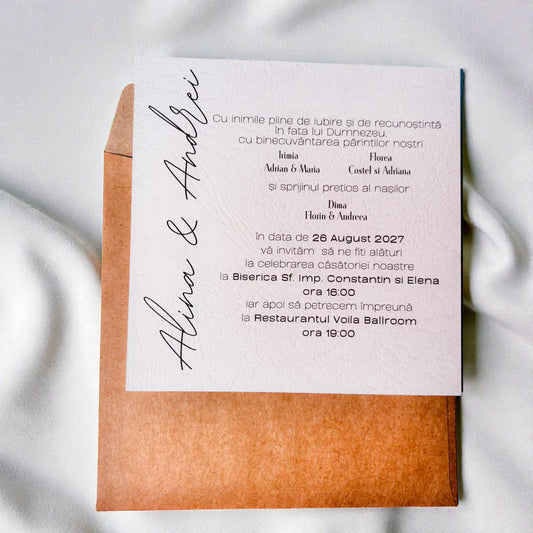 Alina & Andrei
Cu inimile pline de iubire și de recunoștință
în fața lui Dumnezeu,
cu binecuvântarea părinților noștri
Irimia Florea
Adrian & Maria Costel si Adriana
și sprijinul pretios al nașilor
Dima
Florin & Andreea
în data de 26 August 2027
vă invităm să ne fiti alături
la celebrarea căsătoriei noastre
la Biserica Sf. Imp. Constantin si Elena
ora 16:00
iar apoi să petrecem împreună
la Restaurantul Voila Ballroom
ora 19:00